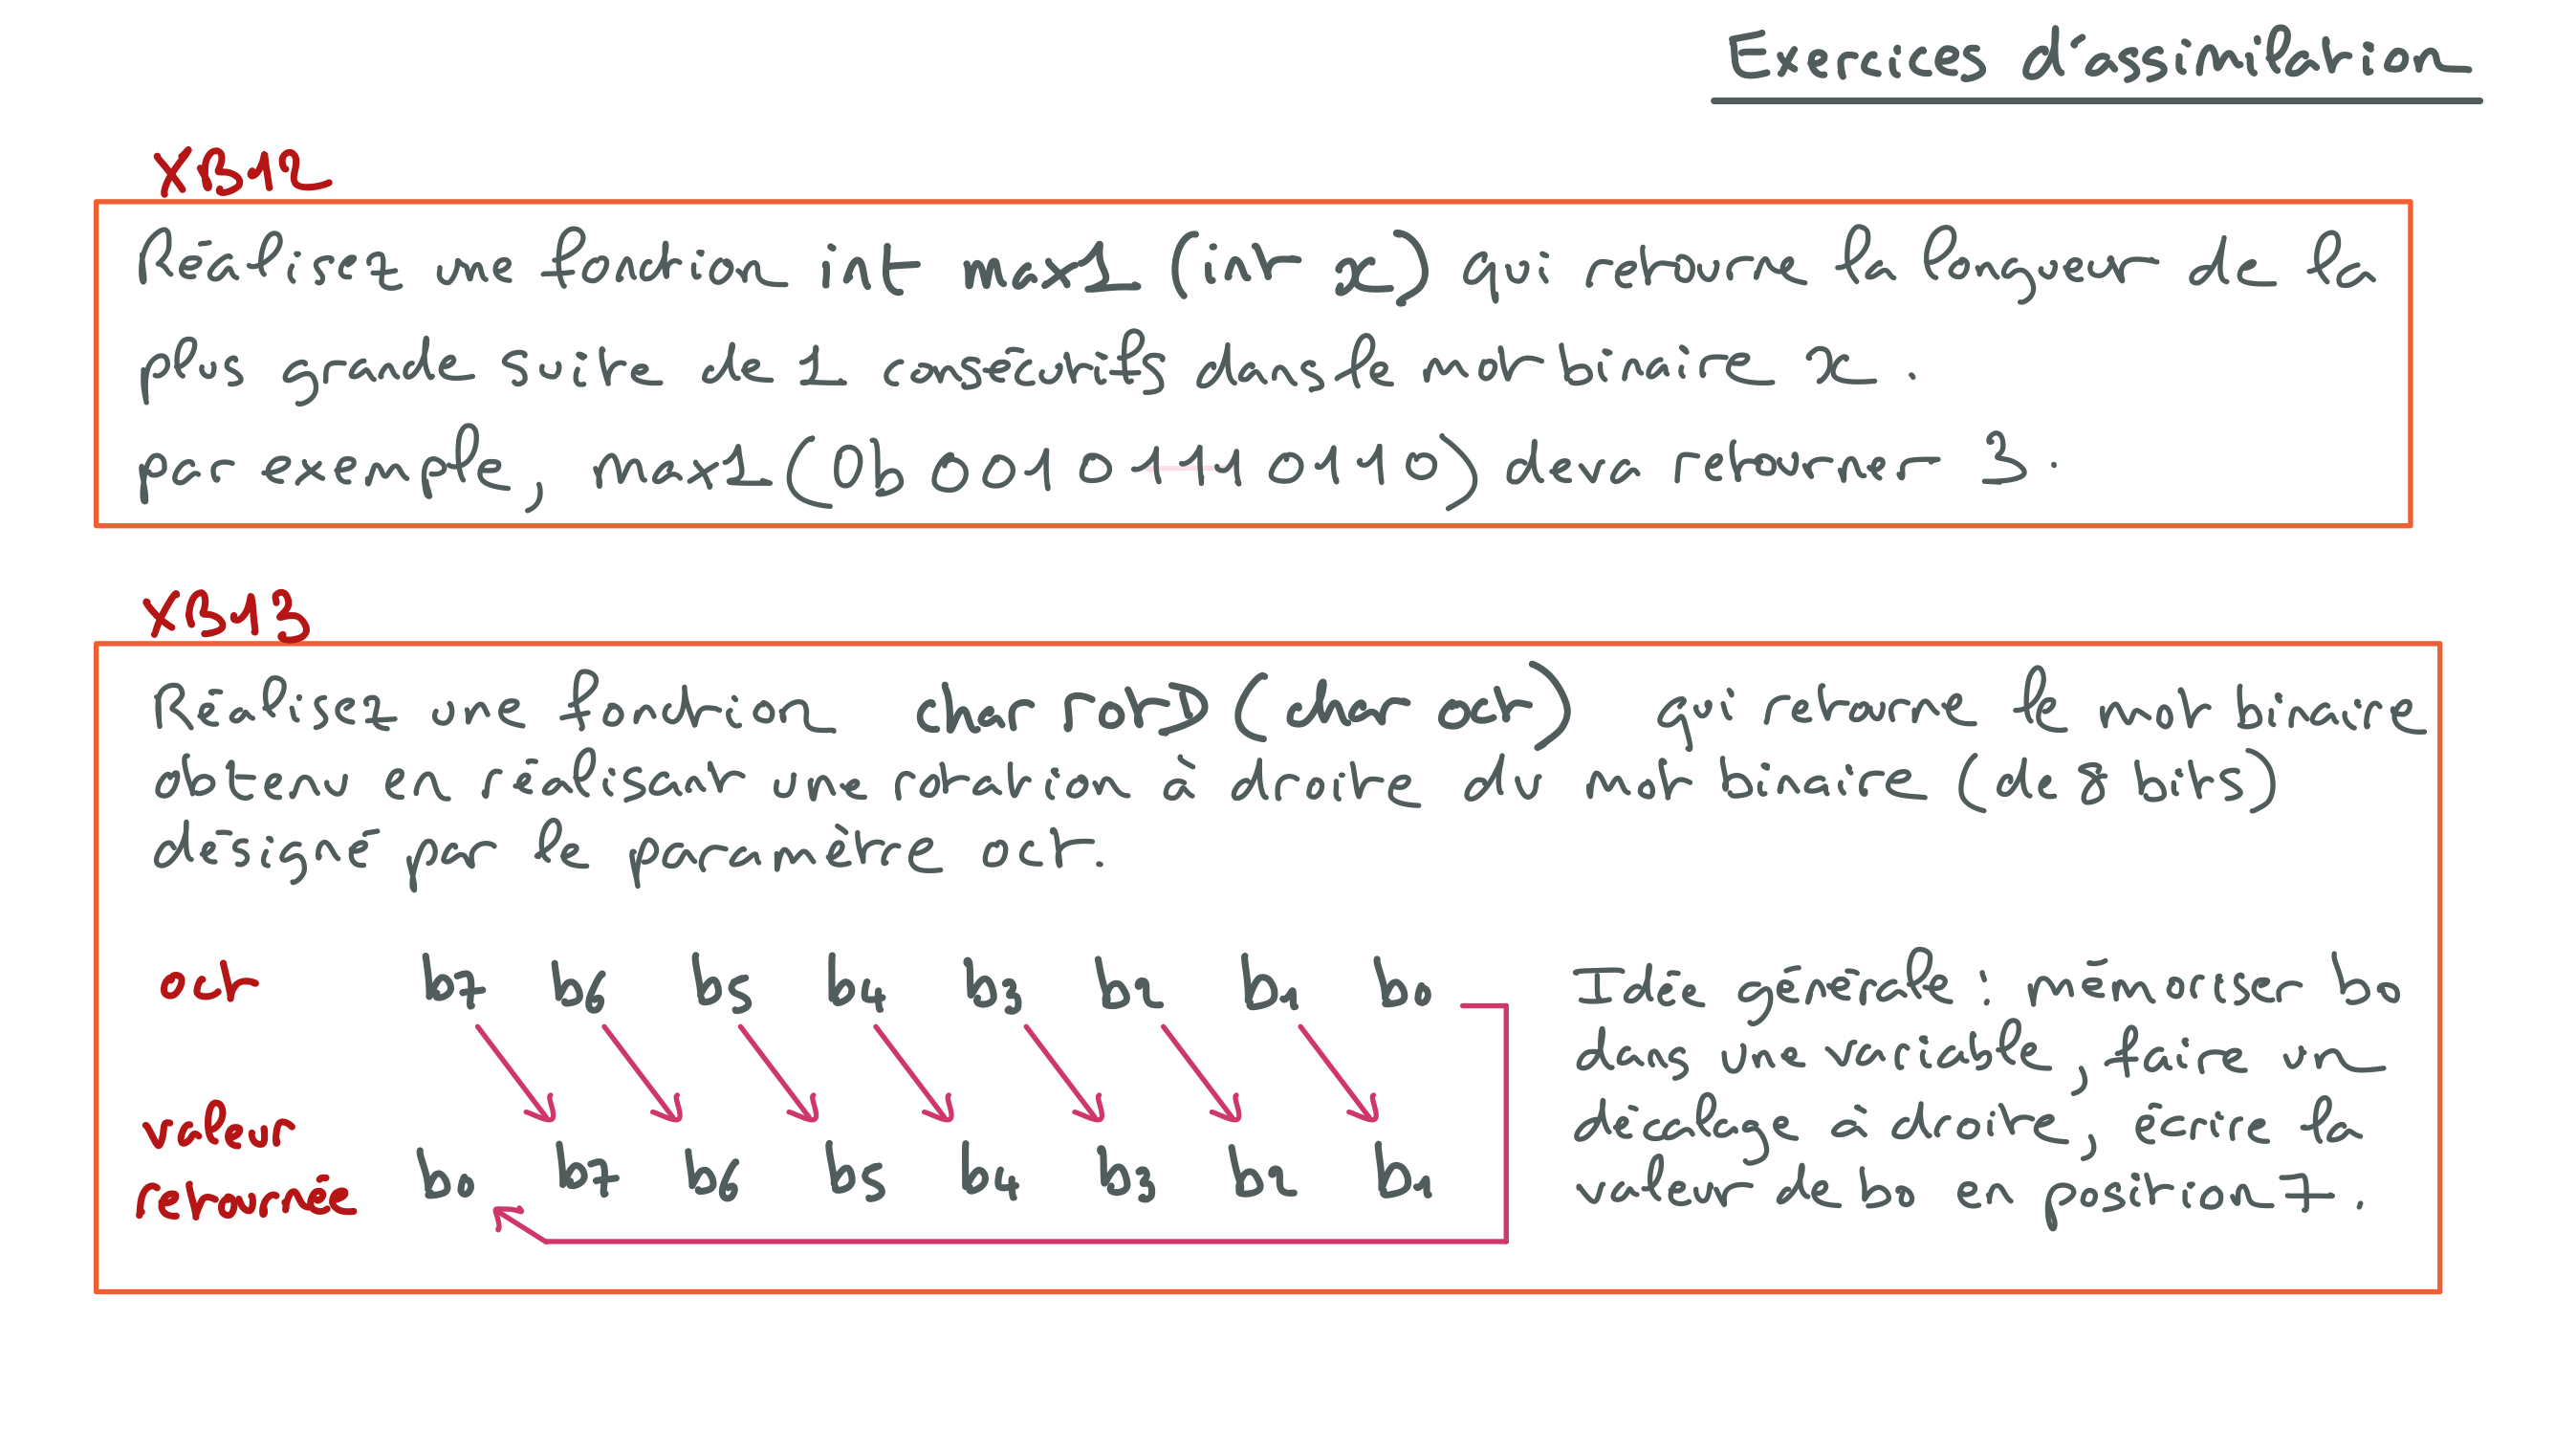 Exercices d'assimilation
XB12
Réalisez une fonction int max1 (int x) qui retourne la longueur de la
plus grande suite de 1 consécutifs dans le mot binaire x.
par exemple, max1(0b 0010 1110110) deva retourner 3.
XB13
Réalisez une fonction char rotD (char oct) qui retourne le mot binaire
obtenu en réalisant une rotation à droite du mot binaire (de 8 bits)
désigné par le paramètre oct.
oct b7 b6 b5 b4 b3 b2 b1 b0
valeur
retournée b0 b7 b6 b5 b4 b3 b2 b1
Idée générale : mémoriser b0
dans une variable, faire un
décalage à droite, écrire la
valeur de b0 en position 7.